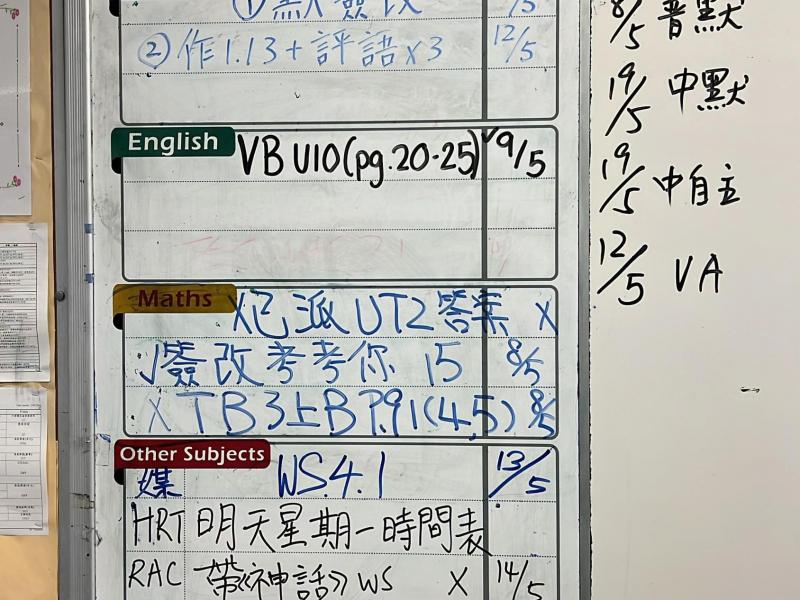 ① 默簽改 /5
② 作1.13+評語x3 12/5
English
VB U10(pg.20-25) 9/5
Maths
X已派UT2答案 X
√簽改考考你 15 8/5
X TB3上B P.91(4,5) 8/5
Other Subjects
媒 WS.4.1 13/5
HRT 明天星期一時間表
RAC 帶《神話》WS X 14/5
8/5 普默
19/5 中默
19/5 中自主
12/5 VA